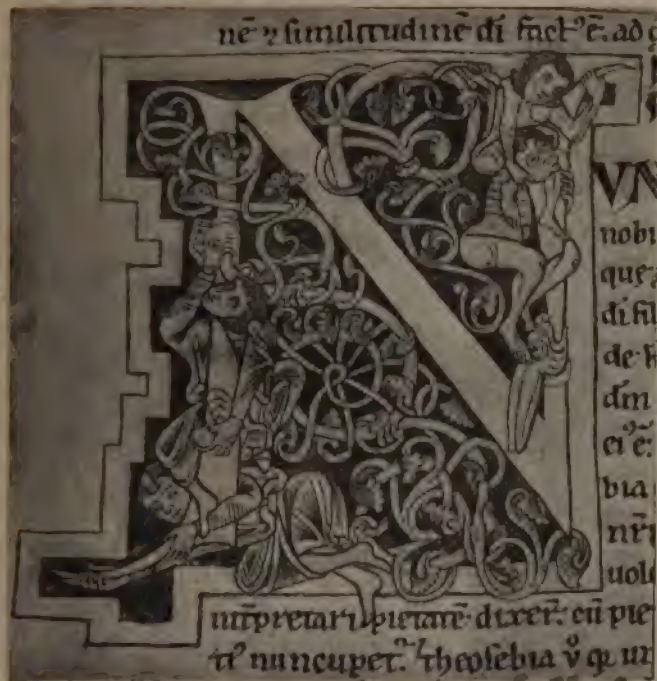 nē ⁊ similitudinē di factꝰ ē. ad
N
VN
nobi
que
di fil
de
dm
ei ē:
bia
nr̄i
uol
int̄pretari pietatē dixer̄: cū pie
nuncupet᷑. theosebia v̊